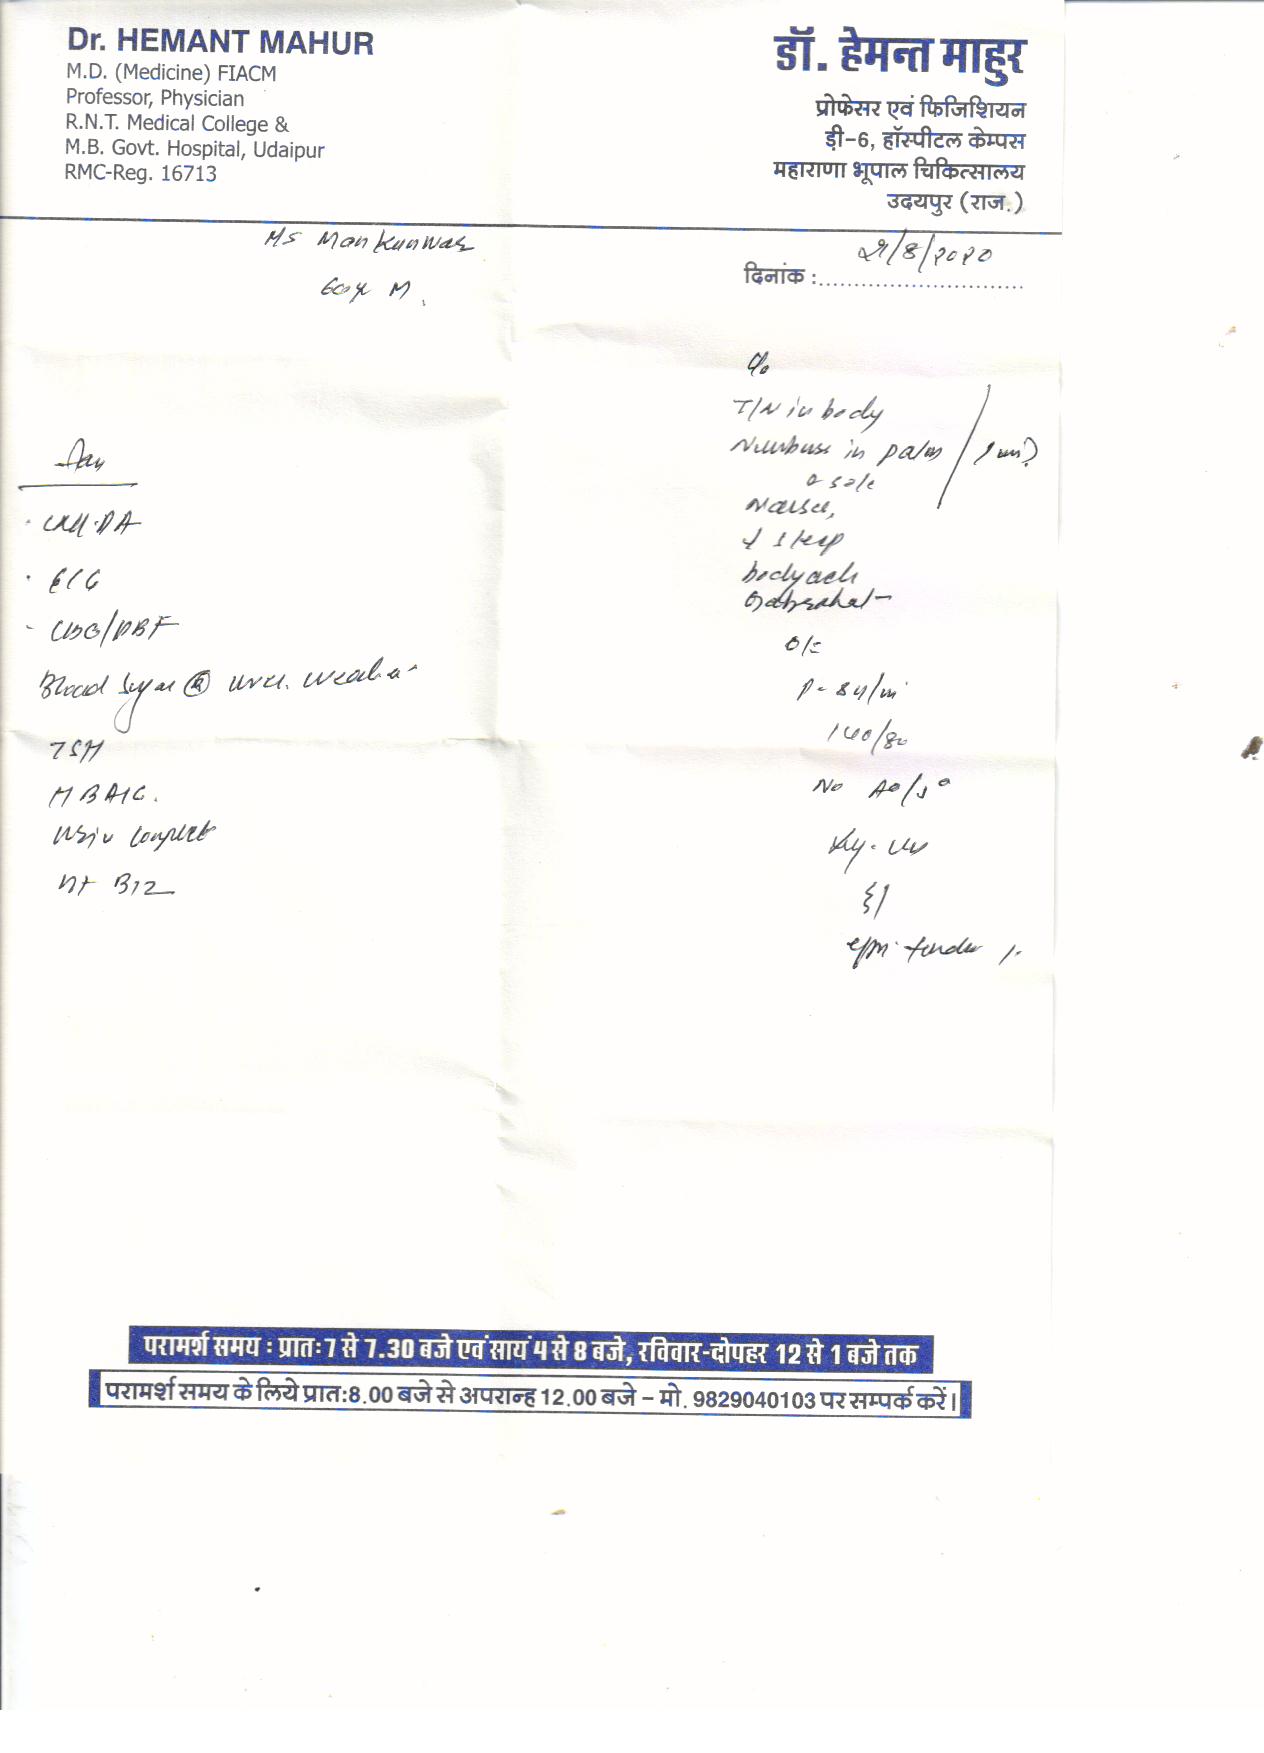 Dr. HEMANT MAHUR
M.D. (Medicine) FIACM
Professor, Physician
R.N.T. Medical College &
M.B. Govt. Hospital, Udaipur
RMC-Reg. 16713
डॉ. हेमन्त माहुर
प्रोफेसर एवं फिजिशियन
ड़ी-6, हॉस्पीटल केम्पस
महाराणा भूपाल चिकित्सालय
उदयपुर (राज.)
Ms Mankunwar
M.
दिनांक : /8/2020
c/o
T/N in body
in palm
& sole
sleep
bodyach
Gabrahat
O/E
P-84/m
140/80
No
tender
ECG
CBC/PBF
Blood Sugar (R)
TSH
HBA1C.
complete
B12
परामर्श समय : प्रातः7 से 7.30 बजे एवं सायं 4 से 8 बजे, रविवार-दोपहर 12 से 1 बजे तक
परामर्श समय के लिये प्रात:8.00 बजे से अपरान्ह 12.00 बजे – मो. 9829040103 पर सम्पर्क करें।